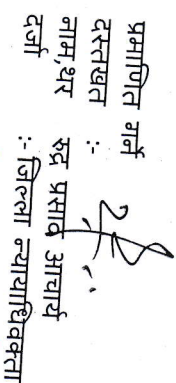 प्रमाणित गर्ने
दस्तखत :-
नाम,थर : रुद्र प्रसाद आचार्य
दर्जा :- जिल्ला न्यायाधिवक्ता